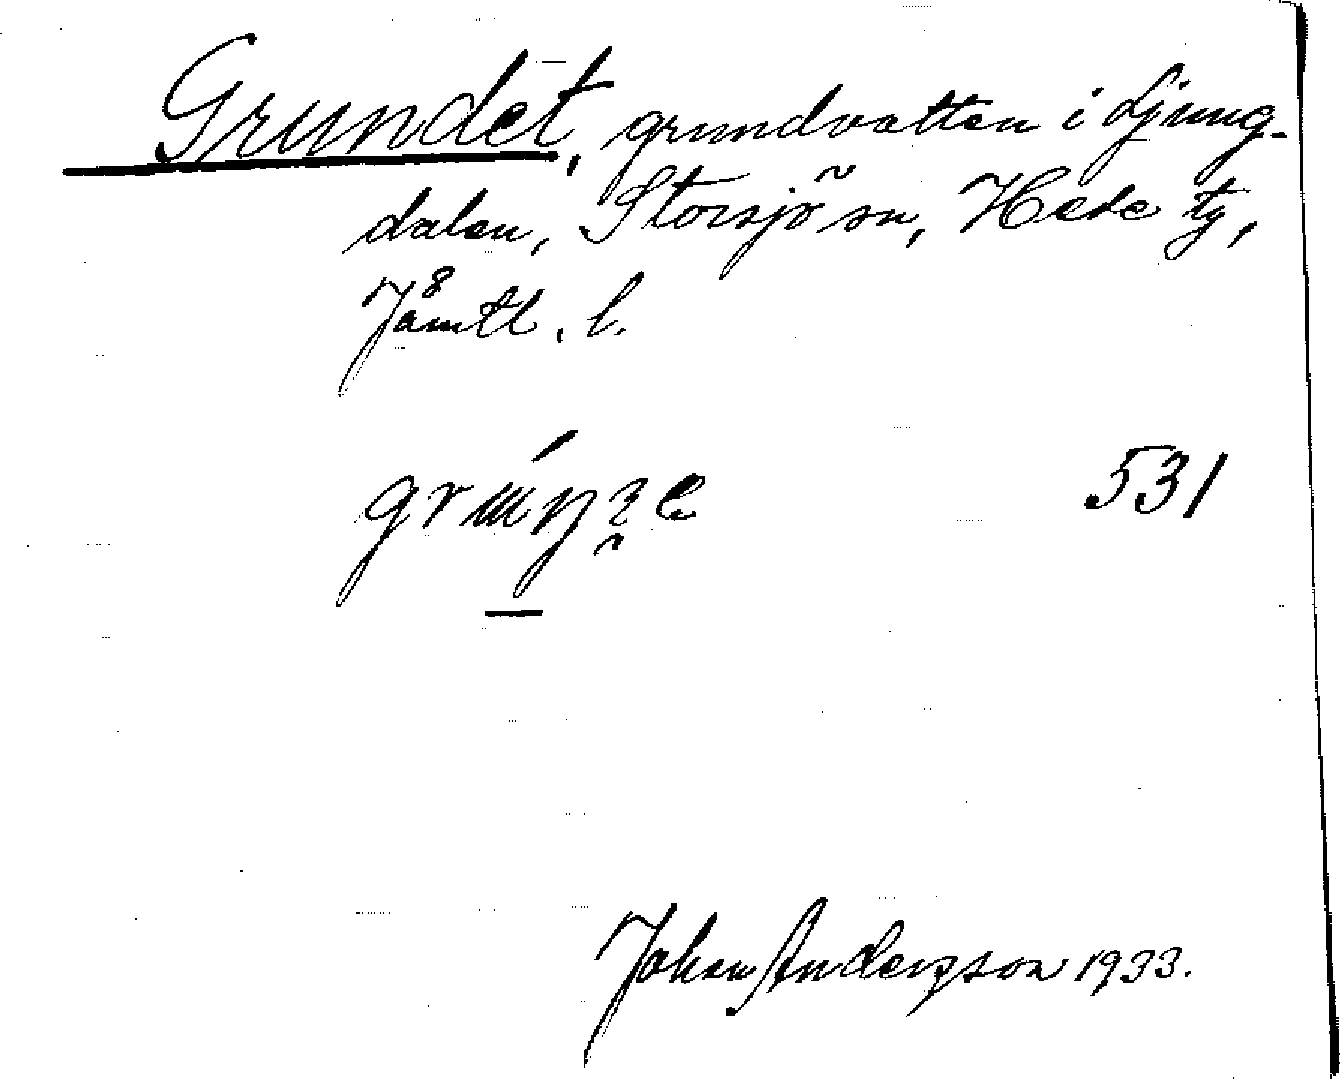 Grundet, grundvatten i Ljung-
dalen, Storsjö sn, Hede tg,
Jämtl. l.
531
Johan Anderzson 1933.